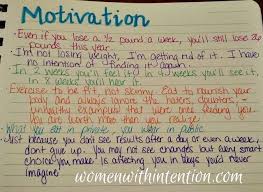 Motivation
• Even if you lose a 1/2 pound a week, you'll still lose 26
pounds this year.
• I'm not losing weight, I'm getting rid of it. I have
no intention of finding it again.
• In 2 weeks you'll feel it. In 4 weeks you'll see it,
In 8 weeks you'll hear it.
• Exercise to be fit, not skinny. Eat to nourish your
body and always ignore the haters, doubters,
unhealthy examples that were once feeding you.
You are worth more than you realize.
• What you eat in private, you wear in public
• Just because you don't see results after a day or even a week,
don't give up. You may not see changes but every smart
choice you make is affecting you in ways you'd never
imagine!
womenwithintention.com